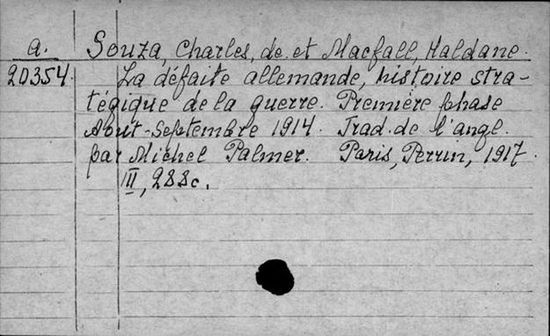 a.
20354.
Souza, Charles, de et Macfall, Haldane.
La défaite allemande, histoire stra-
tégique de la guerre. Première phase
Août-Septembre 1914. Trad. de l'angl.
par Michel Palmer. Paris, Perrin, 1917.
III, 288c.